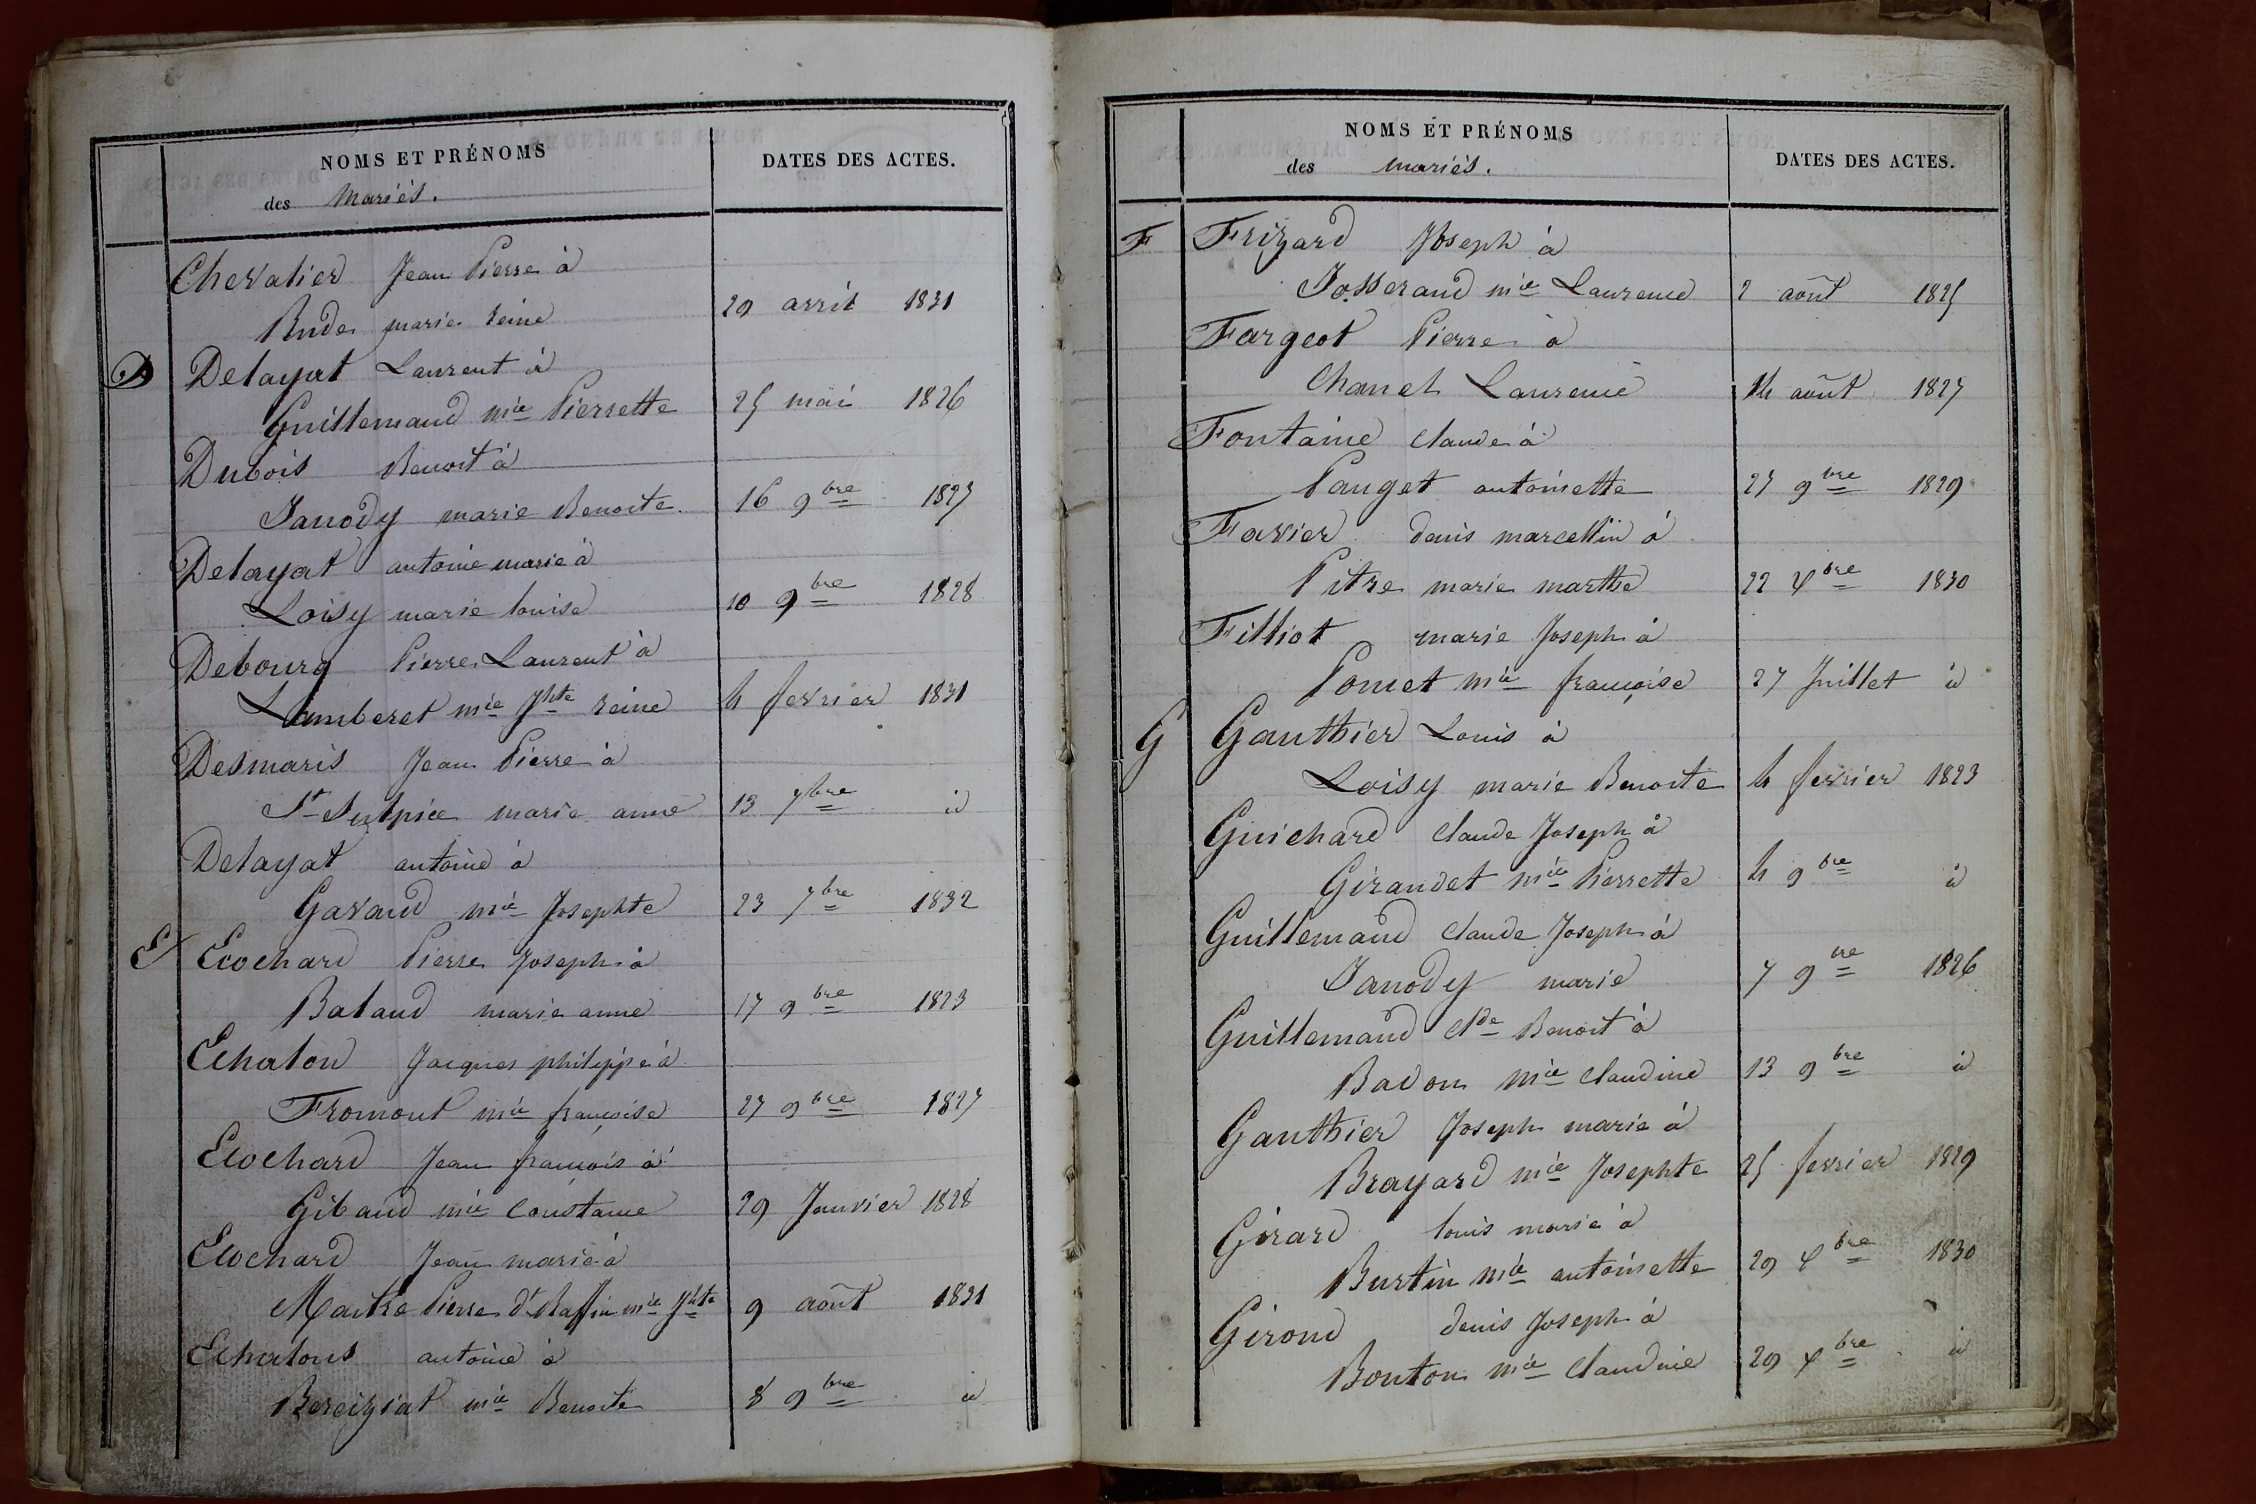 NOMS ET PRÉNOMS
des mariés.
DATES DES ACTES.
Chevalier Jean Pierre à
Rude marie reine 20 avril 1831
D Delayat Laurent à
Guillemaud mie Pierrette 25 mai 1826
Dubois Benoit à
Janody marie Benoite 16 9bre 1827
Delayat antoine marie à
Loisy marie louise 10 9bre 1828
Debourg Pierre Laurent à
Lamberet mie Jhte reine 4 fevrier 1831
Desmaris Jean Pierre à
St Sulpice marie anne 13 7bre id
Delayat antoine à
Gavand mie Josephte 23 7bre 1832
E Ecochard Pierre Joseph à
Baland marie anne 17 9bre 1823
Echalon Jacques philippe à
Fromont mie françoise 27 9bre 1827
Ecochard Jean françois à
Gibaud mie Constance 29 Janvier 1828
Ecochard Jean marie à
Maitre Pierre dt Raffin mie Jhte 9 août 1831
Echalons antoine à
Bereiziat mie Benoite 8 9bre id
NOMS ET PRÉNOMS
des mariés.
DATES DES ACTES.
F Frizard Joseph à
Josserand mie Laurence 2 août 1825
Fargeot Pierre à
Chanel Laurence 14 août 1827
Fontaine Claude à
Pauget antoinette 25 9bre 1829
Favier denis marcellin à
Pitre marie marthe 22 Xbre 1830
Filliot marie Joseph à
Pomet mie françoise 27 Juillet id
G Gauthier Louis à
Loisy marie Benoite 4 fevrier 1823
Guichard Claude Joseph à
Giraudet mie Pierrette 4 9bre id
Guillemaud Claude Joseph à
Janody marie 7 9bre 1826
Guillemaud Clde Benoit à
Badon mie Claudine 13 9bre id
Gauthier Joseph marie à
Brayard mie Josephte 25 fevrier 1829
Girard louis marie à
Burtin mie antoinette 29 Xbre 1830
Giroud denis Joseph à
Bouton mie Claudine 29 Xbre id